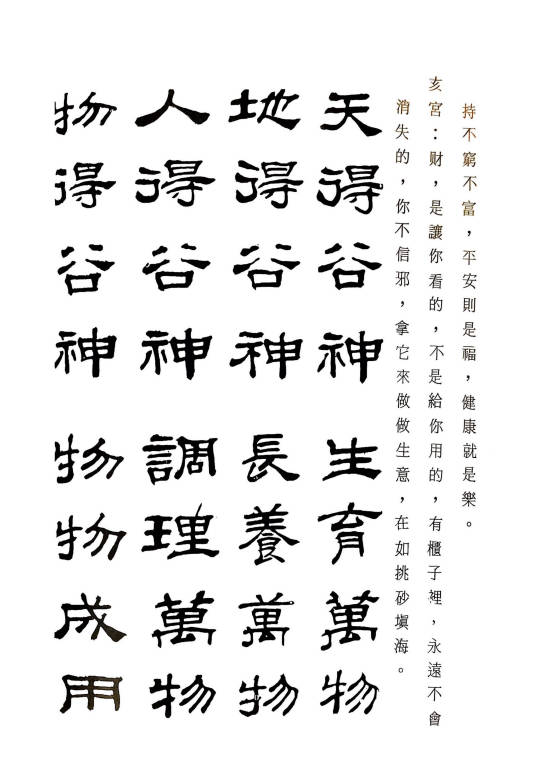 持不窮不富，平安則是福，健康就是樂。
亥宮：财，是讓你看的，不是給你用的，有櫃子裡，永遠不會
消失的，你不信邪，拿它來做做生意，在如挑砂塡海。
天得谷神生育萬物
地得谷神長養萬物
人得谷神調理萬物
物得谷神物物成用